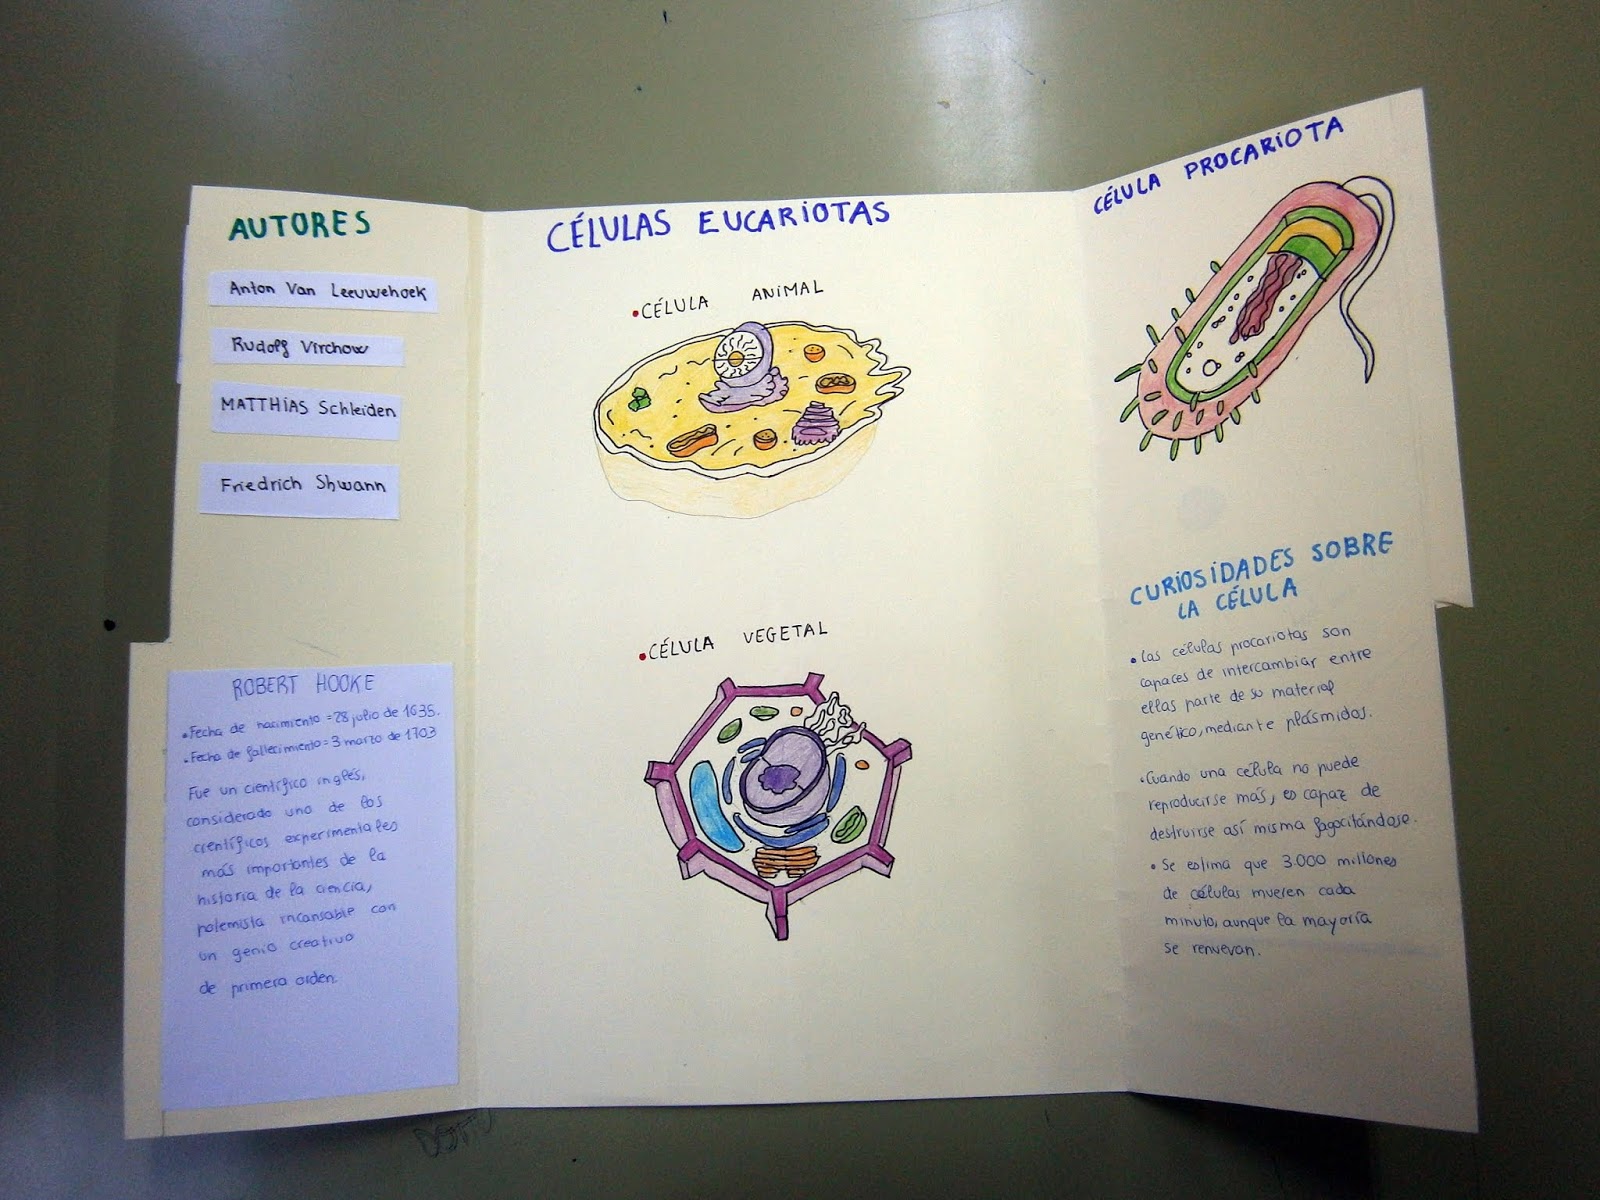 AUTORES
Anton Van Leeuwehoek
Rudolf Virchow
MATTHIAS Schleiden
Friedrich Shwann
ROBERT HOOKE
• Fecha de nacimiento = 28 julio de 1635.
• Fecha de fallecimiento = 3 marzo de 1703
Fue un científico inglés,
considerado uno de los
científicos experimentales
más importantes de la
historia de la ciencia,
polemista incansable con
un genio creativo
de primera orden.
CÉLULAS EUCARIOTAS
• CÉLULA ANIMAL
• CÉLULA VEGETAL
CÉLULA PROCARIOTA
CURIOSIDADES SOBRE
LA CÉLULA
• Las células procariotas son
capaces de intercambiar entre
ellas parte de su material
genético, mediante plásmidos.
• Cuando una célula no puede
reproducirse más, es capaz de
destruirse así misma fagocitándose.
• Se estima que 3.000 millones
de células mueren cada
minuto, aunque la mayoría
se renuevan.